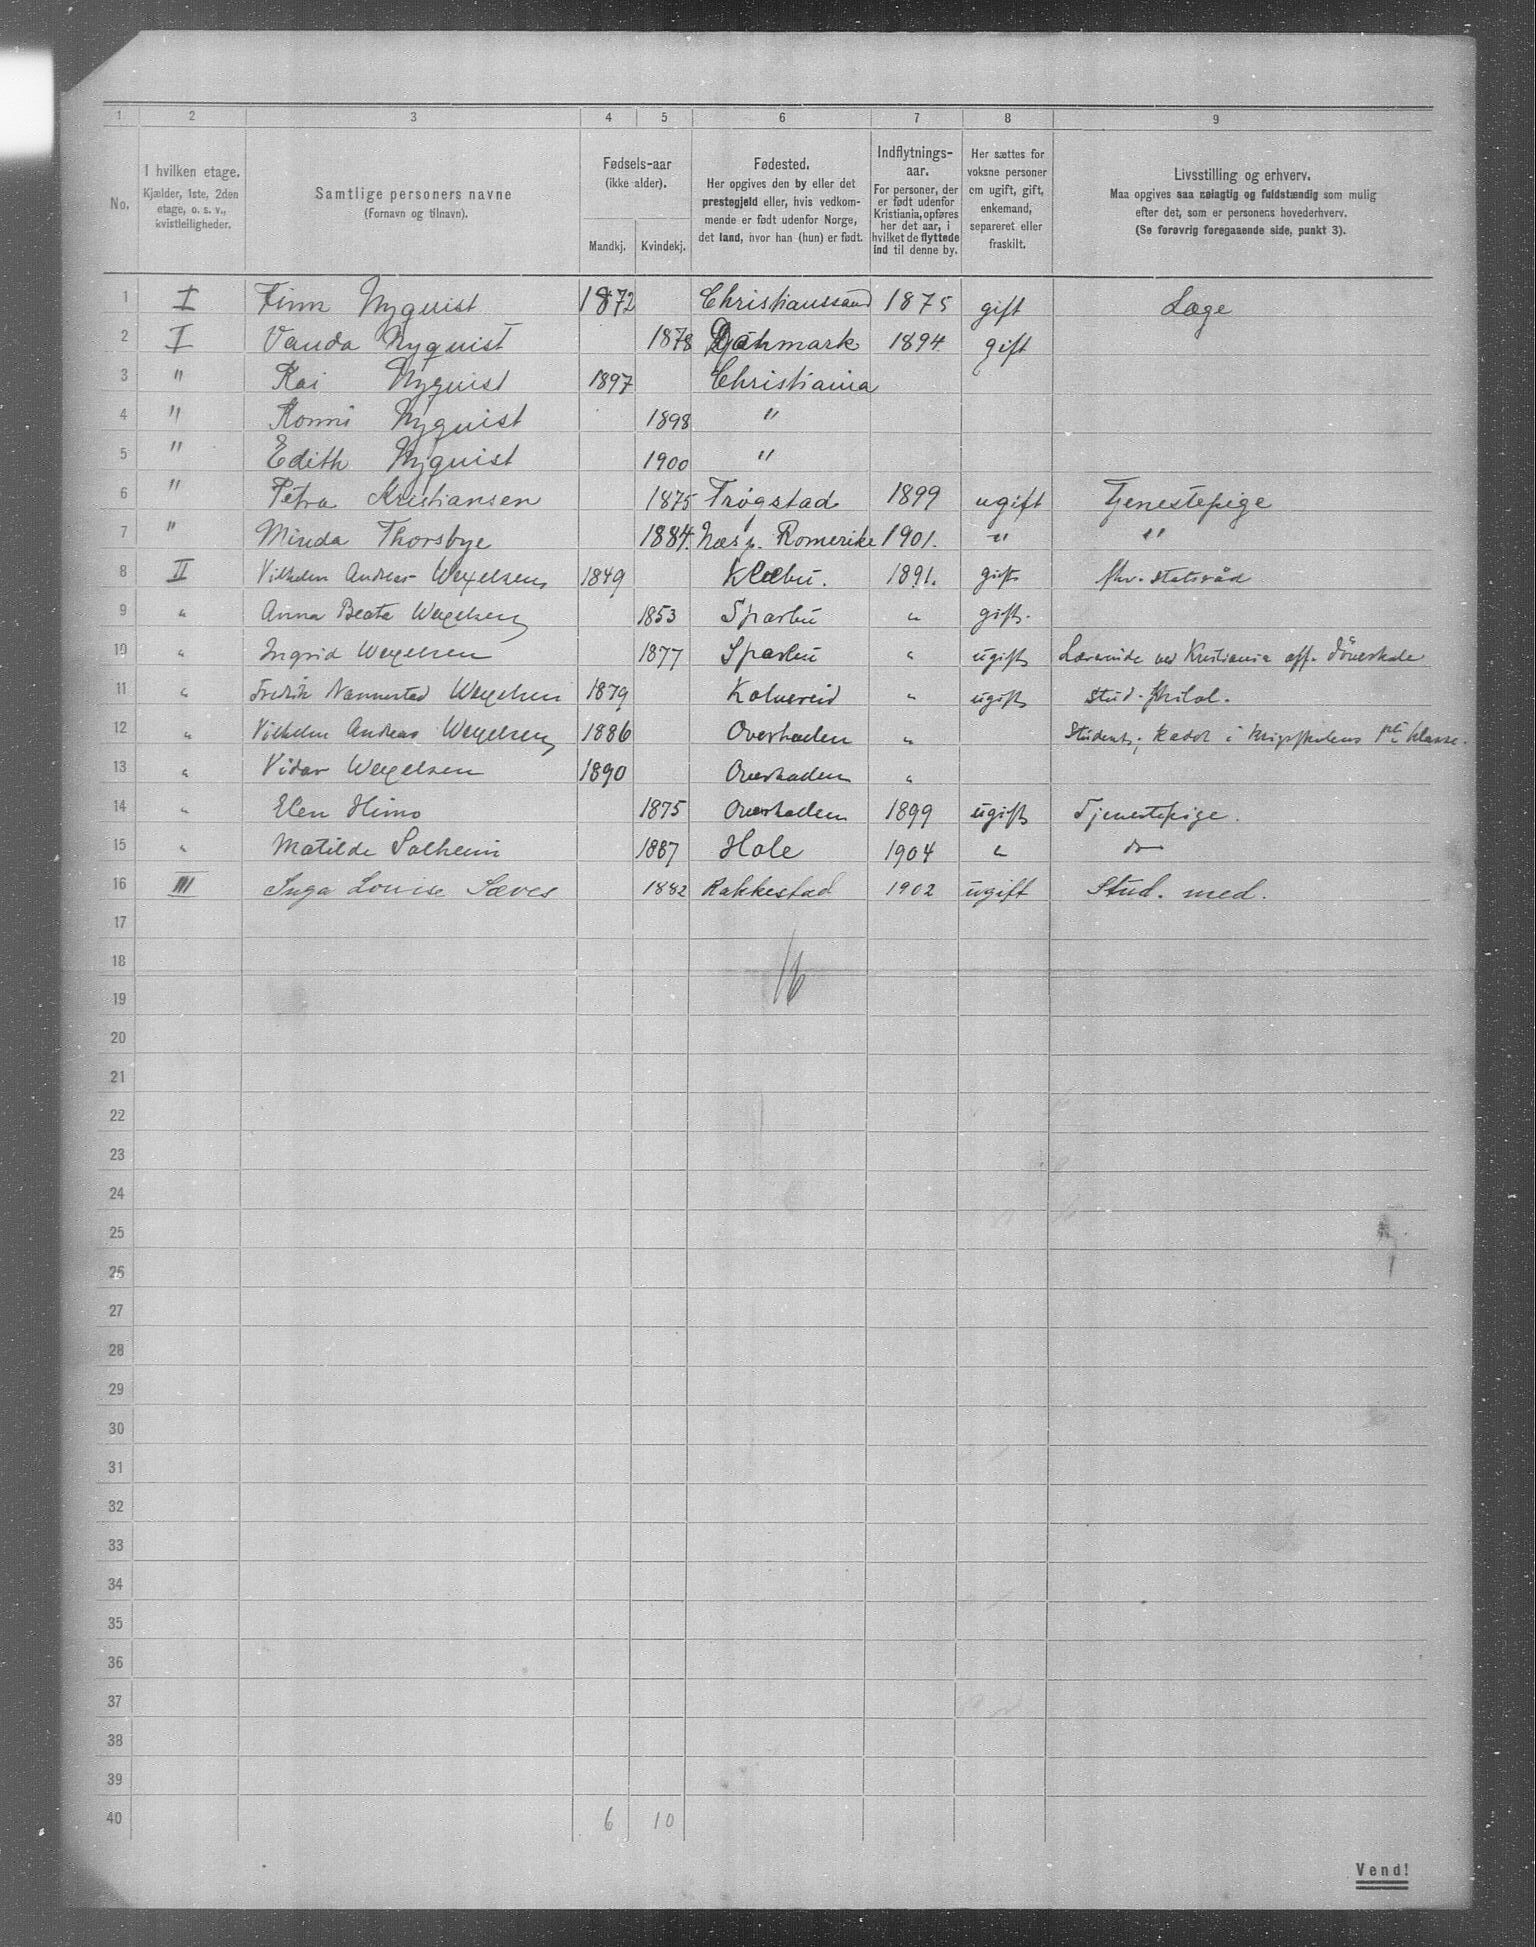 1 2 3 4 5 6 7 8 9
No. I hvilken etage. Kjælder, 1ste, 2den etage, o. s. v., kvistleiligheder.
Samtlige personers navne (Fornavn og tilnavn).
Fødsels-aar (ikke alder). Mandkj. Kvindekj.
Fødested. Her opgives den by eller det prestegjeld eller, hvis vedkommende er født udenfor Norge, det land, hvor han (hun) er født.
Indflytnings-aar. For personer, der er født udenfor Kristiania, opføres her det aar, i hvilket de flyttede ind til denne by.
Her sættes for voksne personer om ugift, gift, enkemand, separeret eller fraskilt.
Livsstilling og erhverv. Maa opgives saa nøiagtig og fuldstændig som mulig efter det, som er personens hovederhverv. (Se forøvrig foregaaende side, punkt 3).
1 I Finn Nyquist 1872 Christianssand 1875 gift Læge
2 I Vanda Nyquist 1878 Danmark 1894 gift
3 " Kai Nyquist 1897 Christiania
4 " Konni Nyquist 1898 "
5 " Edith Nyquist 1900 "
6 " Petra Kristiansen 1875 Trøgstad 1899 ugift Tjenestepige
7 " Minda Thorsbye 1884. Næs p. Romerike 1901. " "
8 II Vilhelm Andreas Wexelsen 1849 Klæbu. 1891. gift fhv. statsråd
9 " Anna Beata Wexelsen 1853 Sparbu " gift.
10 " Ingrid Wexelsen 1877 Sparbu " ugift Lærerinde ved Kristiania off. Döveskole
11 " Fredrik Nannestad Wexelsen 1879 Kolvereid " ugift Stud. philol.
12 " Vilhelm Andreas Wexelsen 1886 Overhalden " Student, kadet i krigsskolens klasse.
13 " Vidar Wexelsen 1890 Overhalden "
14 " Elen Himo 1875 Overhalden 1899 ugift Tjenestepige.
15 " Matilde Solheim 1887 Hole 1904 " do
16 III Inga Louise Sæves 1882 Rakkestad 1902 ugift Stud. med.
17
18 16
19
20
21
22
23
24
25
26
27
28
29
30
31
32
33
34
35
36
37
38
39
40 6 10
Vend!